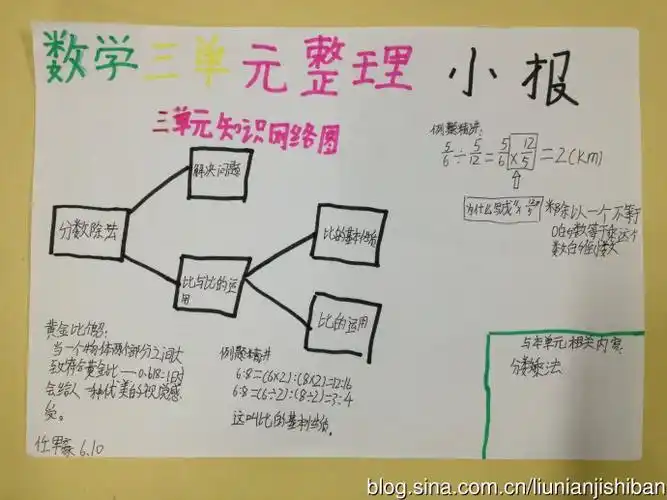 数学三单元整理 小报
三单元知识网络图
解决问题
分数除法
比与比的运
用
比的基本性质
比的运用
例题精讲:
5/6÷5/12=5/6×12/5=2(km)
为什么写成"×12/5"
除以一个不等于
0的数等于乘这个
数的倒数
黄金比
当一个物体两个部分之间大
致符合黄金比——0.618:1时
会给人一种优美的视觉感
受。
例题精讲
6:8=(6×2):(8×2)=12:16
6:8=(6÷2):(8÷2)=3:4
这叫比的基本性质。
与本单元相关内容:
分数乘法
6.10
blog.sina.com.cn/liunianjishiban